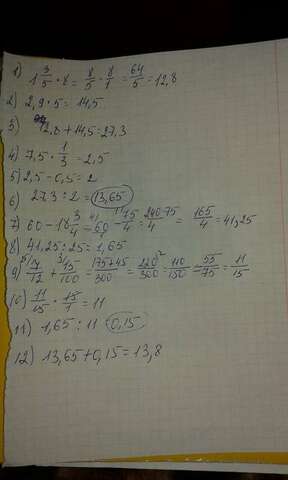 1) 1 3/5 · 8 = 8/5 · 8/1 = 64/5 = 12,8
2) 2,9 · 5 = 14,5
3) 12,8 + 14,5 = 27,3
4) 7,5 · 1/3 = 2,5
5) 2,5 - 0,5 = 2
6) 27,3 : 2 = 13,65
7) 60 - 18 3/4 = 60/1 - 75/4 = 240-75/4 = 165/4 = 41,25
8) 41,25 : 25 = 1,65
9) 7/12 + 15/100 = 175+45/300 = 220/300 = 110/150 = 55/75 = 11/15
10) 11/15 · 15/1 = 11
11) 1,65 : 11 = 0,15
12) 13,65 + 0,15 = 13,8